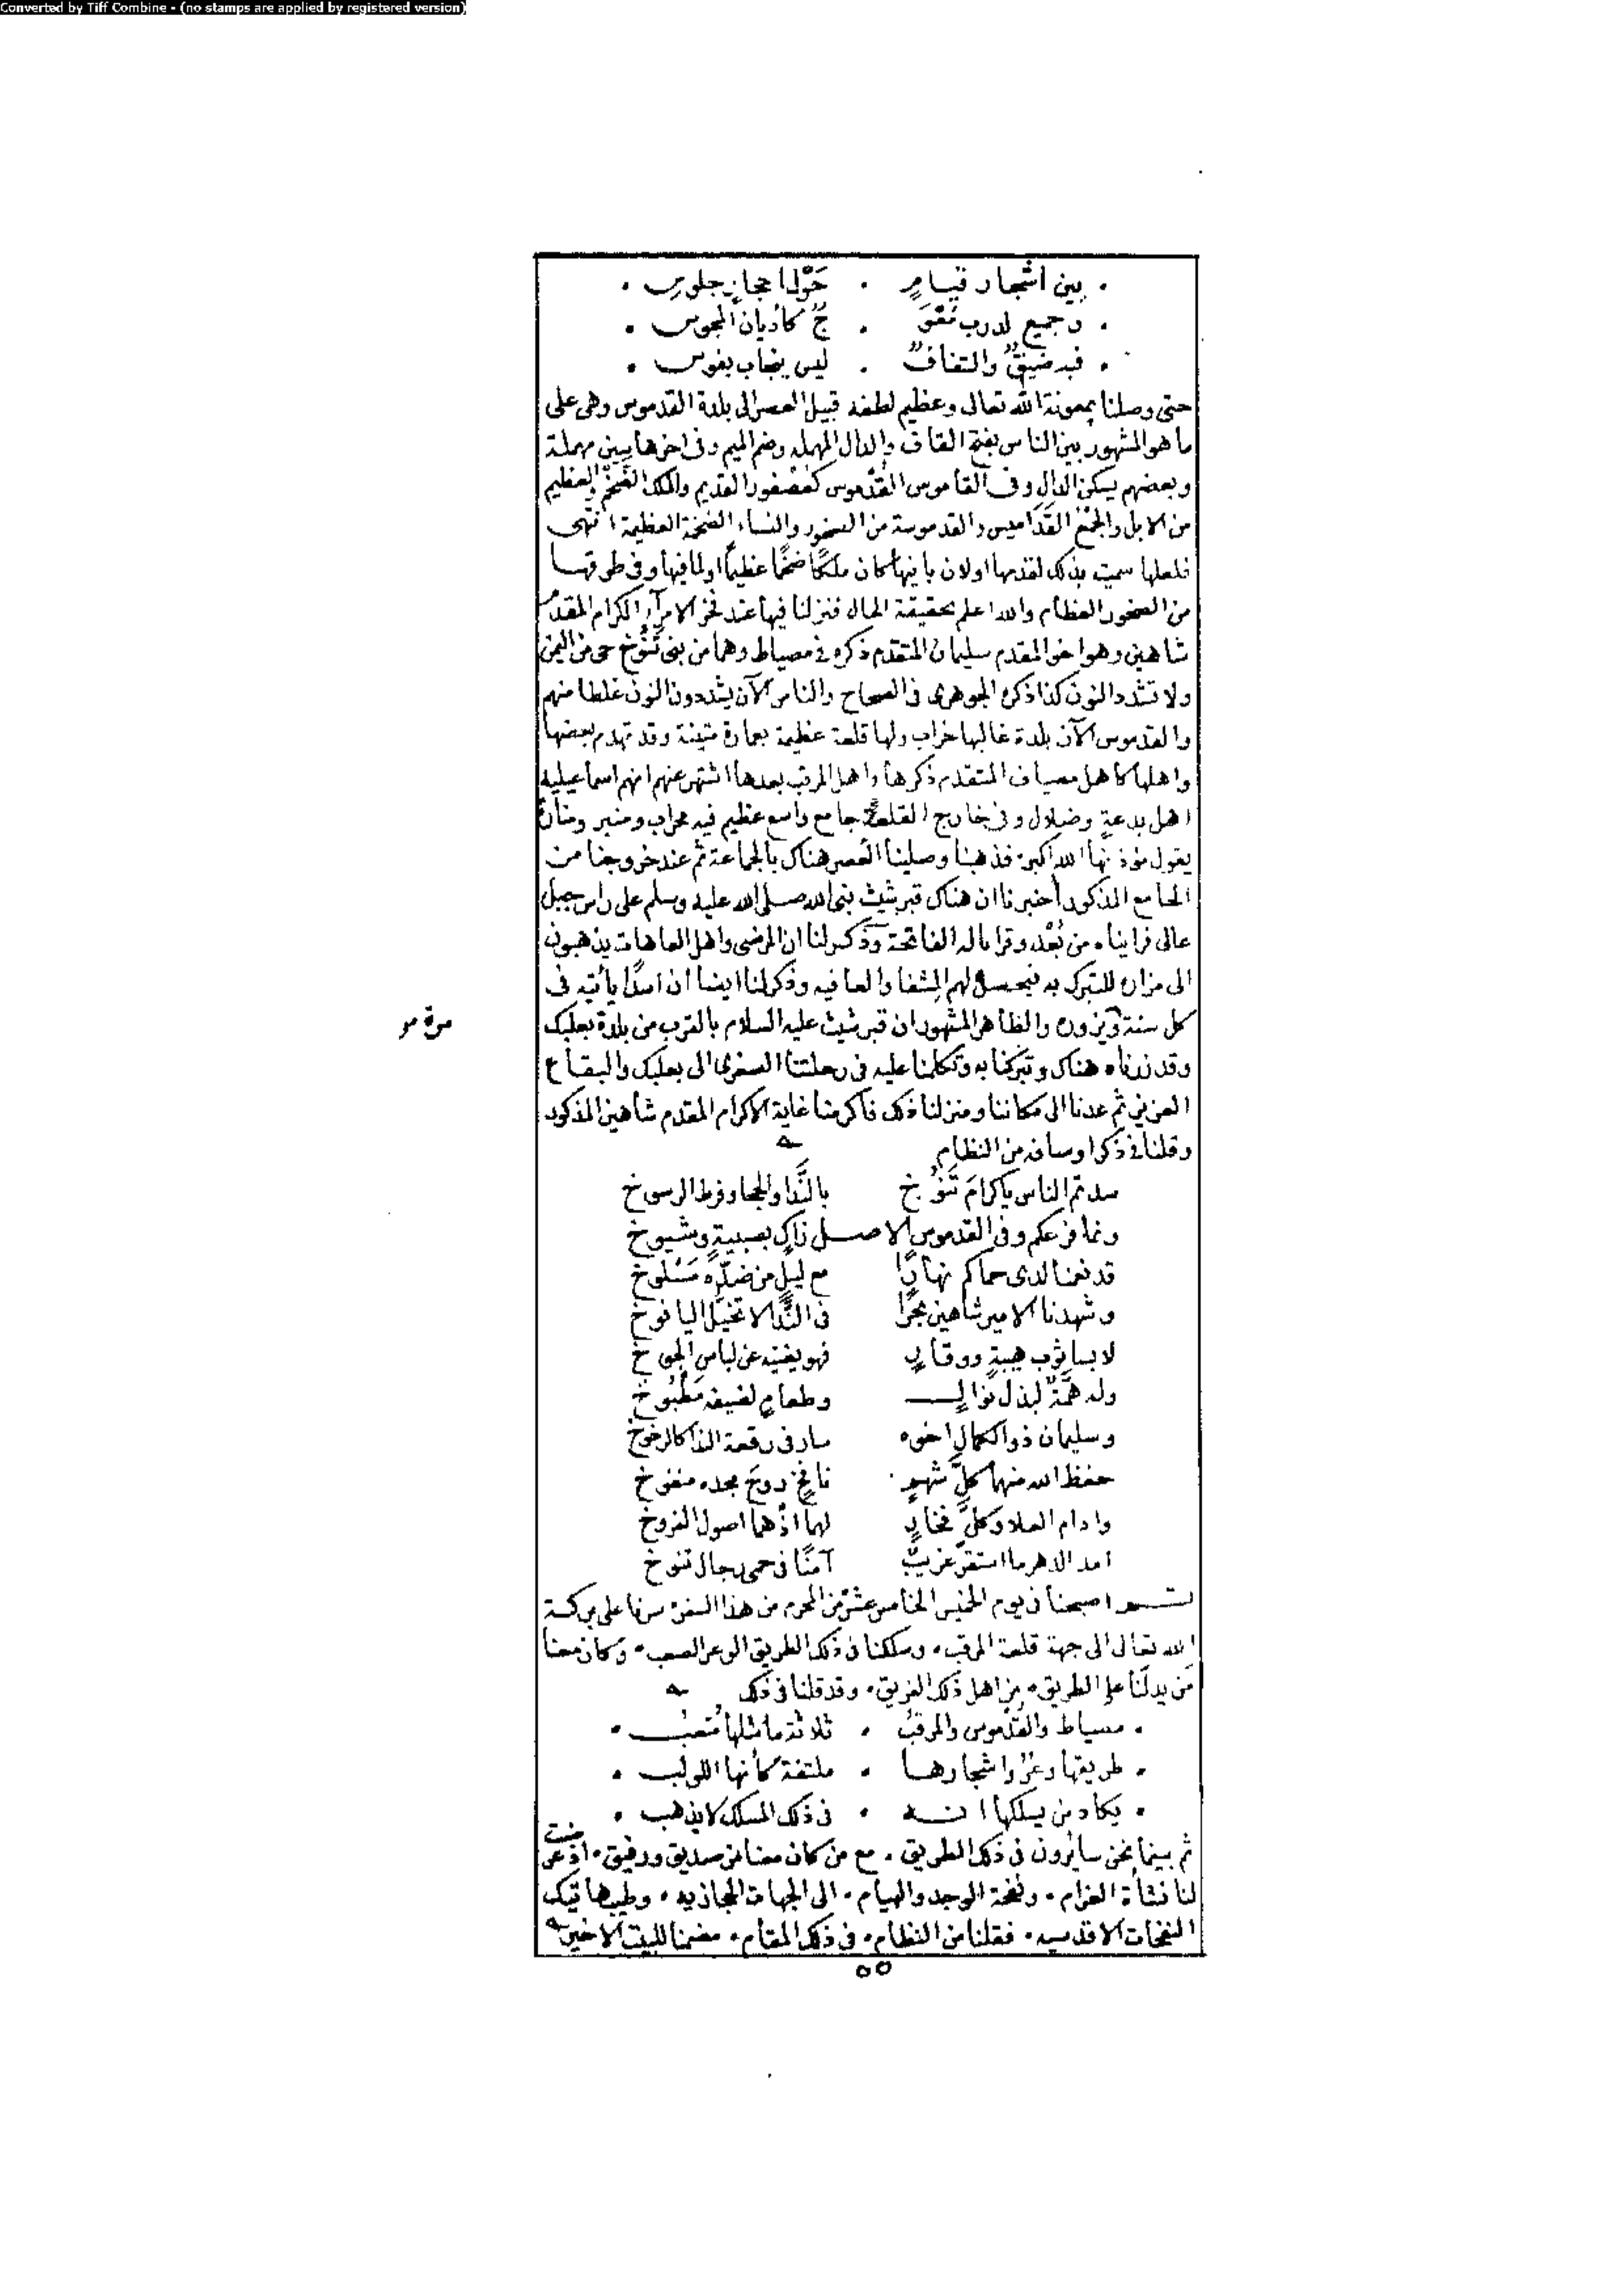 Converted by Tiff Combine - (no stamps are applied by registered version)
. بين اشجار قيامٍ . حَوْل احجارٍ جلوسِ .
. وجميع الدرب مُعْوَ . جٌّ كأديان المجوس .
. فيه ضيقٌ والتفافٌ . ليس ينجاب بفوس .
حتى وصلنا بمعونة الله تعالى وعظيم لطفه قبيل العصر الى بلدة القدموس وهى على
ما هو المشهور بين الناس بفتح القاف والدال المهمله وضم الميم وفى اخرها سين مهملة
وبعضهم يسكن الدال وفى القاموس القُدْموس كعُصْفور القديم والملك الضخم والعظيم
من الابل والجمْع القَدَاميس والقدموسة من الصخور والنساء الضخمة العظيمة انتهى
فلعلها سميت بذلك لقدمها اولان بانيها كان ملكًا ضخمًا عظيمًا اولما فيها وفى طرقها
من الصخور العظام والله اعلم بحقيقة الحال فنزلنا فيها عند فخر الامرآء الكرام المقدم
شاهين وهو اخو المقدم سليمان المتقدم ذكره فى مصياط وهما من بنى تَنُوخ حى من اليمن
ولا تشدد النون كذا ذكره الجوهرى فى الصحاح والناس الآن يشددون النون غلطا منهم
والقدموس الآن بلدة غالبها خراب ولها قلعة عظيمة بعمارة متينة وقد تهدم بعضها
واهلها كاهل مصياف المتقدم ذكرها واهل المرقب بعدها اشتهر عنهم انهم اسماعيليه
اهل بدعةٍ وضلال وفى خارج القلعة جامع واسع عظيم فيه محراب ومنبر ومنارة
يقول مؤذنها الله اكبر فذهبنا وصلينا العصر هناك بالجماعة ثم عند خروجنا من
الجامع المذكور أخبرنا ان هناك قبر شيث نبى الله صلى الله عليه وسلم على راس جبل
عالى فرايناه من بُعْد وقرانا له الفاتحة وذكر لنا ان المرضى واهل العاهات يذهبون
الى مزاره للتبرك به فيحصل لهم الشفا والعافيه وذكر لنا ايضا ان اسدًا يأتيه فى
كل سنة يزوره والظاهر المشهور ان قبر شيث عليه السلام بالقرب من بلدة بعلبك
مرة
وقد زرناه هناك وتبركنا به وتكلمنا عليه فى رحلتنا الصغرى الى بعلبك والبقاع
العزيز ثم عدنا الى مكاننا ومنزلنا ذلك فاكرمنا غاية الاكرام المقدم شاهين المذكور
وقلنا فى ذكر اوصافه من النظام
سدتم الناس ياكرامَ تَنُوخ بالنَّدا والحجا وفرط الرسوخ
ونما فرعكم وفى القدموس الاصل زاكٍ بصبيةٍ وشيوخ
قد نعمنا لدى حماكم نهارًا مع ليلٍ من ضدّه مَسْلوخ
وشهدنا الامير شاهين بحرًا فى النَّدا لا تخيّل اليافوخ
لابسا ثوب هيبةٍ ووقارٍ فهو يغنيه عن لباس الجوخ
وله همَّةٌ لبذل نوالٍ وطعامٍ لضيفه مَطْبُوخ
وسليمان ذو الكمال اخوه سار فى رقعة الندا كالرخوخ
حفظ الله منهما كلّ شهمٍ نافخٍ روحَ مجده منفوخ
وادام العلا وكلّ فخارٍ لهما اذْ هما اصول الفروخ
امد الدهر ما استقرّ غريبٌ آمنًا فى حمى رجال تنوخ
ثم اصبحنا فى يوم الخميس الخامس عشر من المحرم من هذا السفر سرنا على بركة
الله تعالى الى جهة قلعة المرقب، وسلكنا فى ذلك الطريق الوعر الصعب، وكان معنا
مَن يدلّنا على الطريق، من اهل ذلك الفريق، وقد قلنا فى ذلك
. مصياط والقُدْموس والمرقبُ . ثلاثة ما مثلها مُتعبُ .
. طريقها وعْرٌ واشجارها . ملتفة كأنها اللولب .
. يكاد من يسلكها انه . فى ذلك المسلك لا يذهب .
ثم بينما نحن سائرون فى ذلك الطريق، مع من كان معنا من صديق ورفيق، اذ عرضت
لنا نشأة الغرام، ونفحة الوجد والهيام، الى الجهات الحجازيه، وطيب هاتيك
النفحات الاقدسيه، فقلنا من النظام، فى ذلك المقام، مضمنا للبيت الاخير
٥٥